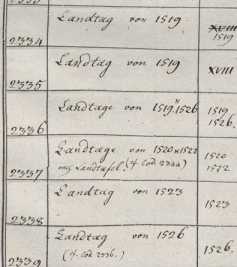 Landtag von 1519 XVIII
2334 1519
Landtag von 1519 XVIII
2335
Landtage von 1519 u 1526 1519
2336 1526.
Landtæge von 1520 u 1522 1520
2337 Landtafel. (cf Cod 2322)
Landtag von 1523 1523
2338
Landtag von 1526 1526.
2339 (cf. Cod 2336.)